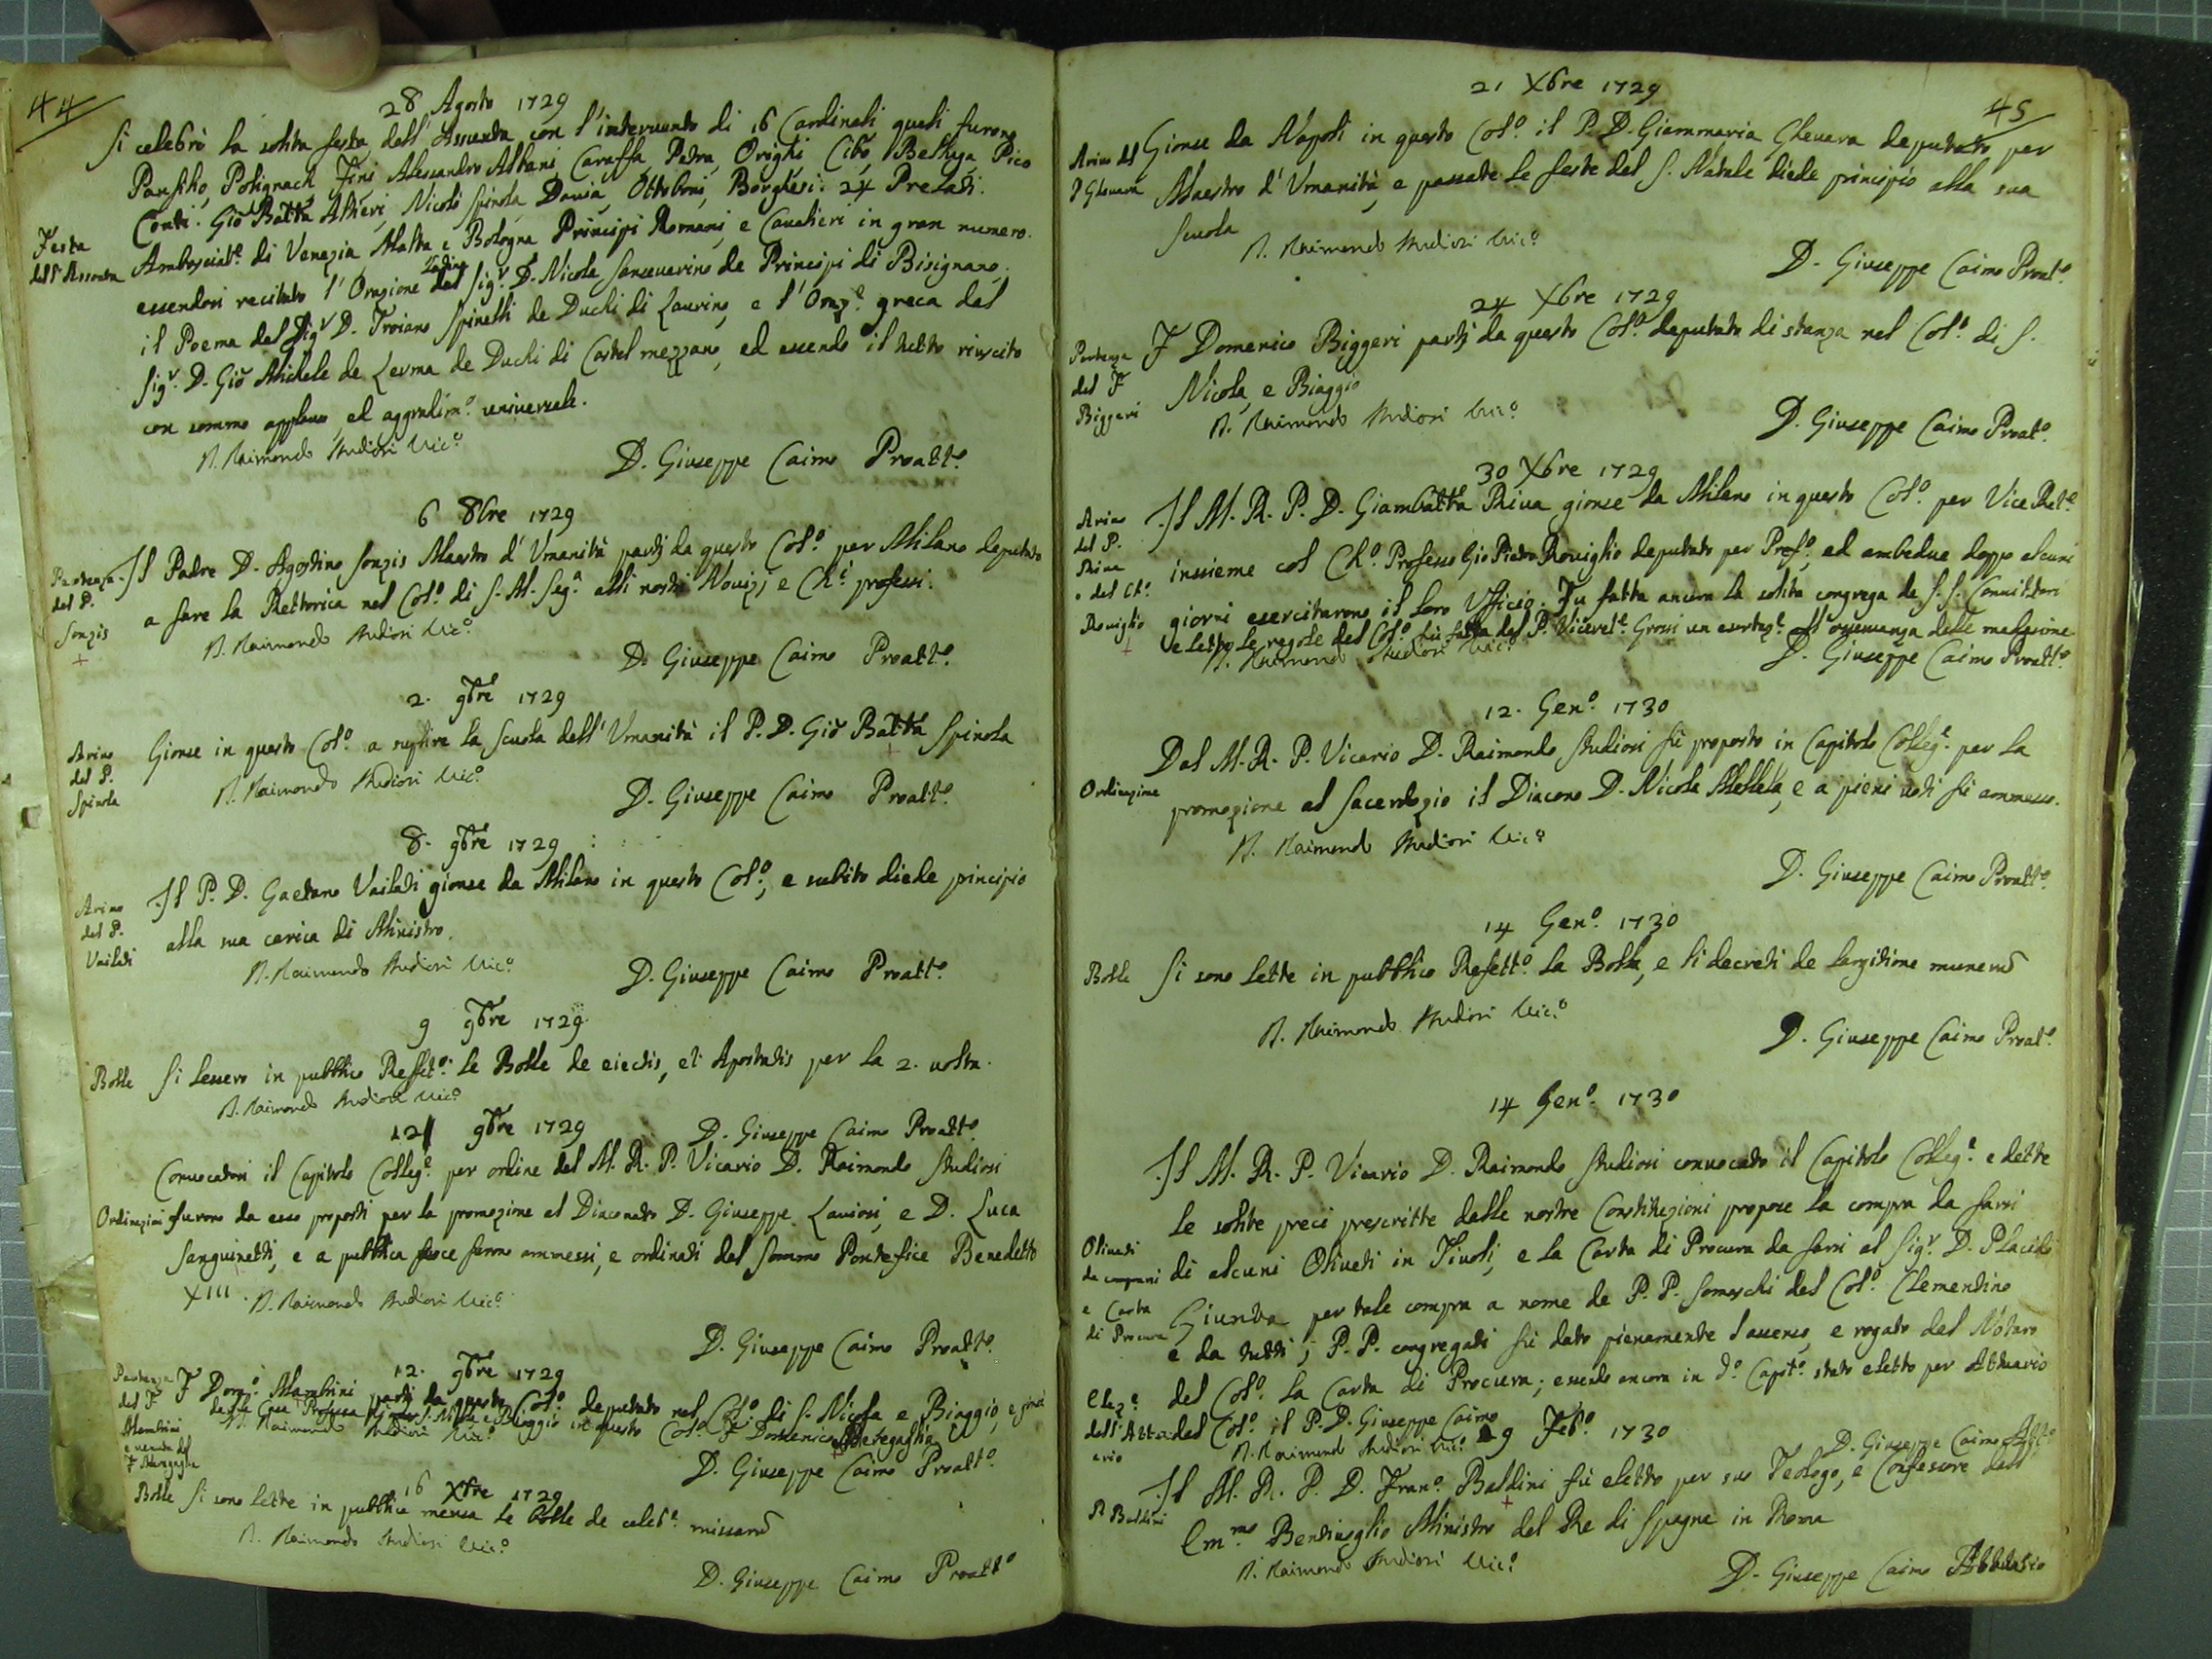 44
28 Agosto 1729
Si celebrò la solita festa dell'Assunta con l'intervento di 16 Cardinali quali furono
Panfilio, Polignach, Fini, Alessandro Albani, Caraffa, Petra, Orighi, Cibo, Belluga, Pico
Conti. Giō Batta Altieri, Nicolò Spinola, Davia, Ottoboni, Borghesi. 24 Prelati.
Festa
dell'Assonta
Ambasciat.e di Venezia Malta e Bologna Principi Romani, e Cavalieri in gran numero.
essendosi recitato l'Orazione Latina del Sig.r D. Nicola Sanseverino de Principi di Bisignano,
il Poema del Sig.r D. Troiano Spinelli de Duchi di Laurino, e l'Oraz.e greca del
Sig.r D. Giō Michele de Lerma de Duchi di Castel mezzano, ed essendo il tutto riuscito
con sommo applauso, ed aggradim.o universale.
D. Raimondo Studiosi Vic.o
D. Giuseppe Caimo Proatt.o
6 8bre 1729
Partenza
del P.
Sonzis
Il Padre D. Agostino Sonzis Maestro d'Umanità partì da questo Col.o per Milano deputato
a fare la Rettorica nel Col.o di S. M. Seg.a alli nostri Novizj e Ch.i professi.
D. Raimondo Studiosi Vic.o
D. Giuseppe Caimo Proatt.o
2. 9bre 1729
Arivo
del P.
Spinola
Gionse in questo Col.o a suplire la Scuola dell'Umanità il P. D. Giō Batta Spinola
D. Raimondo Studiosi Vic.o
D. Giuseppe Caimo Proatt.o
8. 9bre 1729
Arivo
del P.
Vailati
Il P. D. Gaetano Vailati gionse da Milano in questo Col.o, e subito diede principio
alla sua carica di Ministro.
D. Raimondo Studiosi Vic.o
D. Giuseppe Caimo Proatt.o
9 9bre 1729
Bolle
Si lessero in pubblico Reffet.o le Bolle de eiectis, et Apostatis per la 2. volta.
D. Raimondo Studiosi Vic.o
D. Giuseppe Caimo Proatt.o
9bre 1729
Convocatosi il Capitolo Colleg.e per ordine del M. R. P. Vicario D. Raimondo Studiosi
Ordinazioni
furono da esso proposti per la promozione al Diaconato D. Giuseppe Laviosi, e D. Luca
Sanguinetti, e a pubblica voce furono ammessi, e ordinati dal Sommo Pontefice Benedetto
XIII.
D. Raimondo Studiosi Vic.o
D. Giuseppe Caimo Proatt.o
12. 9bre 1729
Partenza
del F.
Mambrini
e venuta del
F. Meregaglia
F. Dom.o Mambrini partì da questo Col.o deputato nel Col.o di S. Nicola e Biaggio, e
in questo Col.o F. Domenico Meregaglia
D. Raimondo Studiosi Vic.o
D. Giuseppe Caimo Proatt.o
16 Xbre 1729
Bolle
Si sono lette in pubblica mensa le bolle de celeb.e missarū
D. Raimondo Studiosi Vic.o
D. Giuseppe Caimo Proatt.o
45
21 Xbre 1729
Arivo del
P Glevara
Gionse da Napoli in questo Col.o il P. D. Giammaria Glevara deputato per
Maestro d'Umanità, e passate le feste del S. Natale diede principio alla sua
Scuola
D. Raimondo Studiosi Vic.o
D. Giuseppe Caimo Proat.o
24 Xbre 1729
Partenza
del F
Biggeri
F Domenico Biggeri partj da questo Col.o deputato di stanza nel Col.o di S.
Nicola, e Biaggio
D. Raimondo Studiosi Vic.o
D. Giuseppe Caimo Proat.o
30 Xbre 1729
Arivo
del P.
Riva
e del Ch.o
Roviglio
Il M. R. P. D. Giambatta Riva gionse da Milano in questo Col.o per Vice Ret.e
insieme col Ch.o Professo Gio Pietro Roviglio deputato per Pref.o, ed ambedue doppo alcuni
giorni esercitarono il loro Ufficio. Fu fatta ancora la solita congrega de S. S. Convittori
e letto le regole del Col.o fù fatta dal P. Viceret.e Grossi un esortaz.e all'osservanza delle medesime
D. Raimondo Studiosi Vic.o
D. Giuseppe Caimo Proatt.o
12. Gen.o 1730
Ordinazione
Dal M. R. P. Vicario D. Raimondo Studiosi fù proposto in Capitolo Colleg.e per la
promozione al Sacerdozio il Diacono D. Nicola Mellela, e a pieni voti fù ammesso.
D. Raimondo Studiosi Vic.o
D. Giuseppe Caimo Proatt.o
14 Gen.o 1730
Bolle
Si sono lette in pubblico Refett.o la Bolla, e li decreti de largitione munerū
D. Raimondo Studiosi Vic.o
D. Giuseppe Caimo Proat.o
14 Gen.o 1730
Il M. R. P. Vicario D. Raimondo Studiosi convocato il Capitolo Colleg.e e dette
le solite preci prescritte dalle nostre Constituzioni propose la compra da farsi
Oliveti
da comprarsi
e Carta
di Procura
di alcuni Oliveti in Tivoli, e la Carta di Procura da farsi al Sig.r D. Placido
Giunta per tale compra a nome de P. P. Somaschi del Col.o Clementino
e da tutti i P. P. congregati fù dato pienamente l'assenso, e rogato dal Notaro
Elez.e
dell'Attu
ario
del Col.o la Carta di Procura; essendo ancora in d.o Capit.o stato eletto per Attuario
del Col.o il P. D. Giuseppe Caimo
D. Raimondo Studiosi Vic.o
D. Giuseppe Caimo Att.o
9 Feb.o 1730
P. Baldini
Il M. R. P. D. Fran.o Baldini fù eletto per suo Teologo, e Confessore dall'
Em.mo Bentivoglio Ministro del Re di Spagna in Roma
D. Raimondo Studiosi Vic.o
D. Giuseppe Caimo Attuario